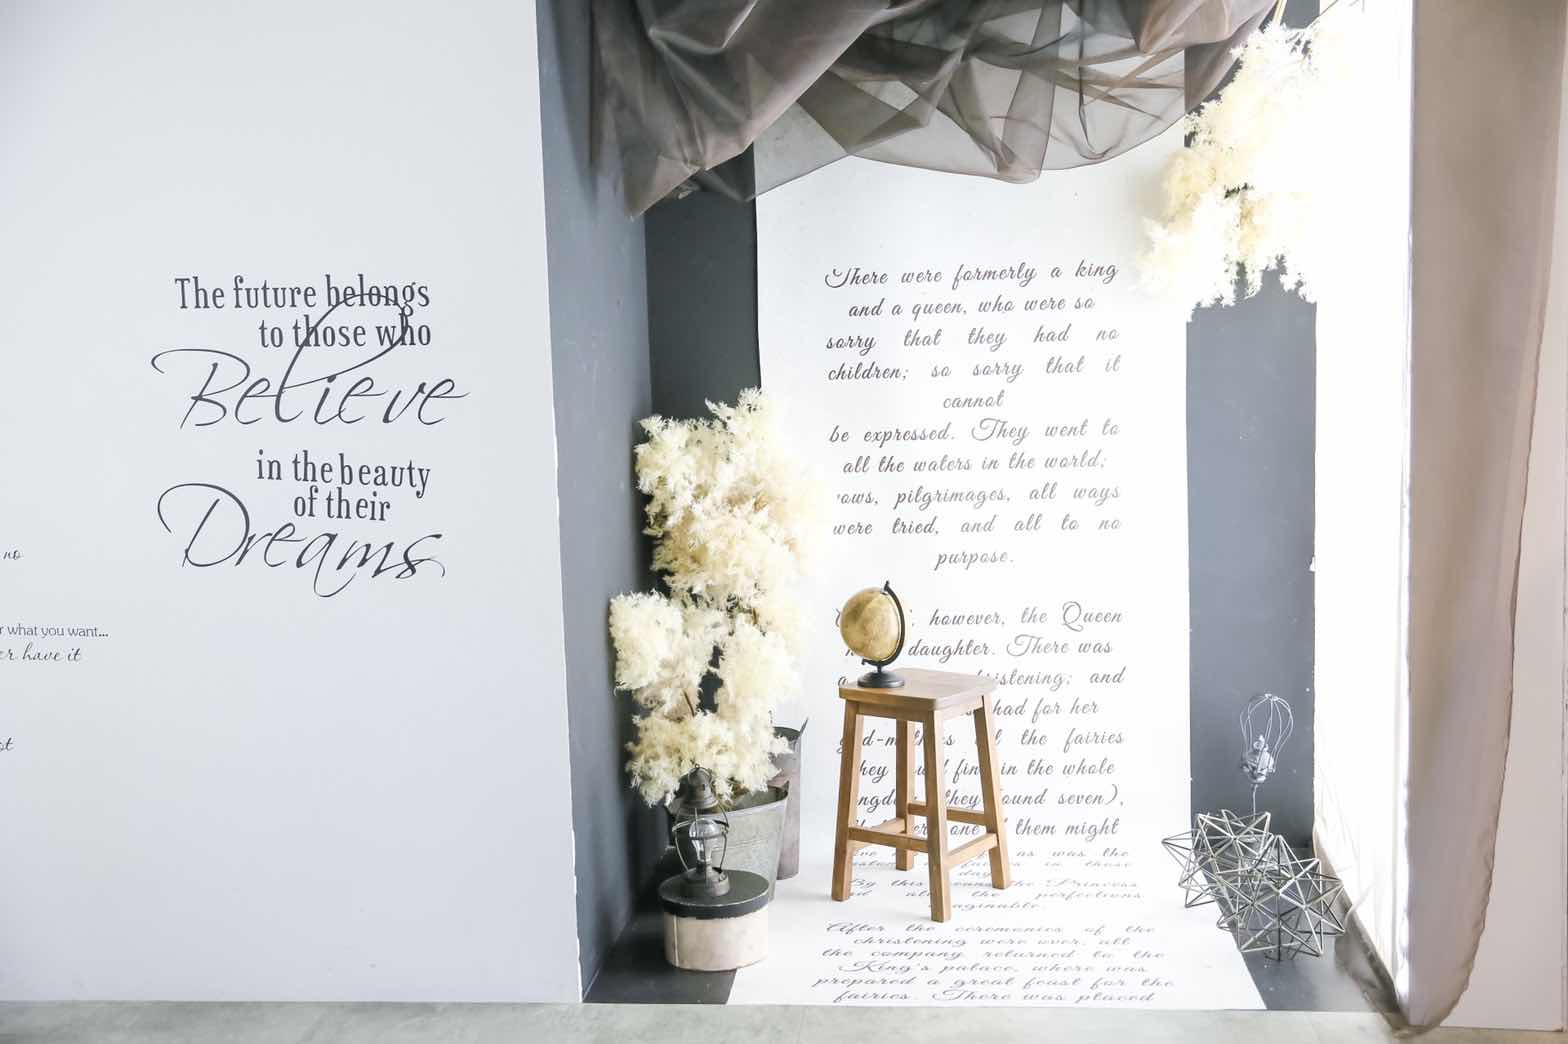 The future belongs
to those who
Believe
in the beauty
of their
Dreams
no
what you want...
have it
There were formerly a king
and a queen, who were so
sorry that they had no
children; so sorry that it
cannot
be expressed. They went to
all the waters in the world;
vows, pilgrimages, all ways
were tried, and all to no
purpose.
however, the Queen
daughter. There was
and
had for her
the fairies
they find in the whole
they found seven),
one of them might
as was the
in those
day
By this the Princess
all the perfections
imaginable.
After the ceremonies of the
christening were over, all
the company returned to the
King's palace, where was
prepared a great feast for the
fairies. There was placed